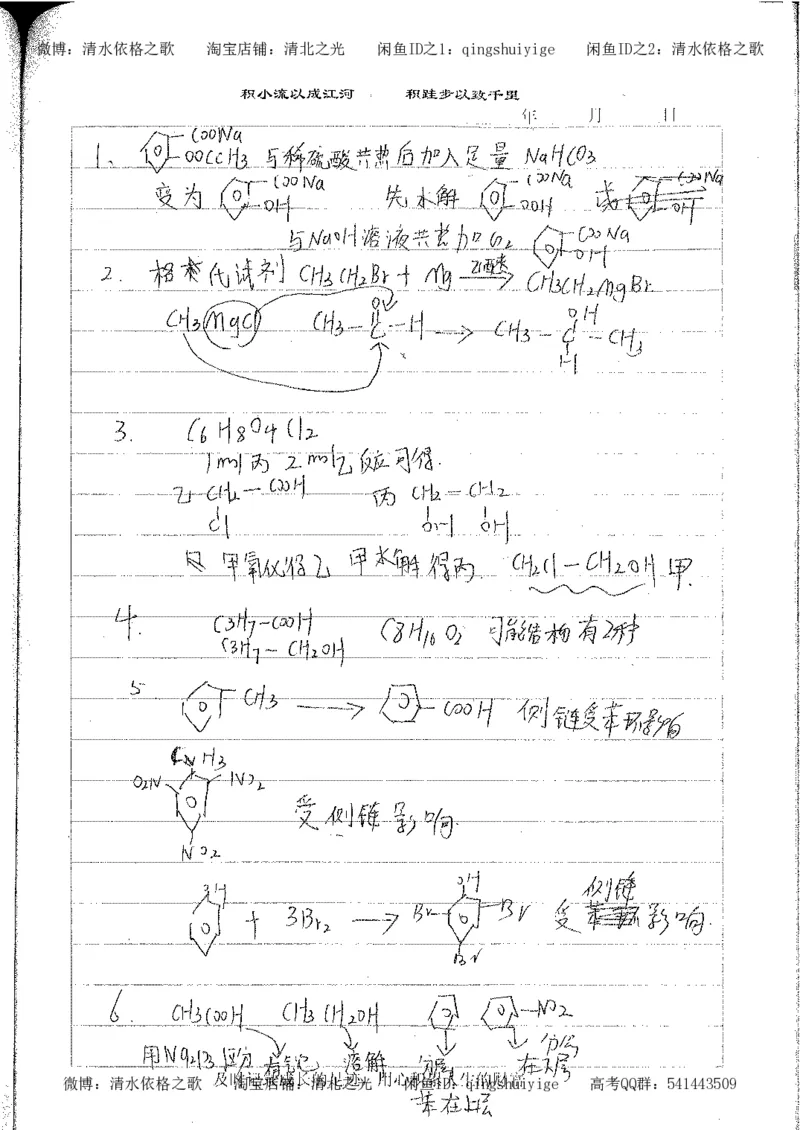 微博：清水依格之歌 淘宝店铺：清北之光 闲鱼ID之1：qingshuiyige 闲鱼ID之2：清水依格之歌
积小流以成江河 积跬步以致千里
年 月 日
1、 COONa OOCCH3 与稀硫酸共热后加入足量 NaHCO3
变为 COONa OH 先水解 COONa OOH 或 COONa OH
与NaOH溶液共热加CO2 COONa OH
2. 格林代试剂 CH3CH2Br + Mg 乙醚 → CH3CH2MgBr
CH3MgCl CH3-C-H O → CH3-C-CH3 OH H
3. C6H8O4Cl2
1mol丙 2mol乙反应可得.
乙 CH2-COOH 丙 CH2-CH2
Cl OH OH
甲氧化得乙 甲水解得丙. CH2Cl-CH2OH 甲.
4. C3H7-COOH C8H16O2 可能结构有2种
C3H7-CH2OH
5 CH3 → COOH 侧链受苯环影响
CH3
O2N NO2
受侧链影响.
NO2
OH OH 侧链
+ 3Br2 → Br Br 受苯环影响.
Br
6. CH3COOH CH3CH2OH NO2
用Na2CO3区分 有气泡 溶解 分层 分层 在下层
苯在上层
微博：清水依格之歌 淘宝店铺：清北之光 闲鱼ID：qingshuiyige 高考QQ群：541443509